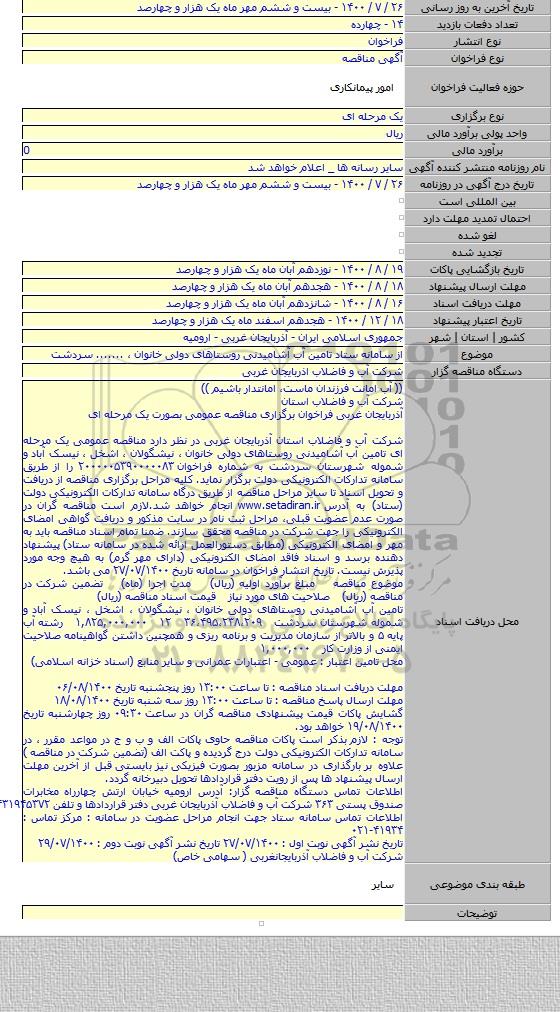 تاریخ آخرین به روز رسانی ۲۶ / ۷ / ۱۴۰۰ - بیست و ششم مهر ماه یک هزار و چهارصد
تعداد دفعات بازدید ۱۴ - چهارده
نوع انتشار فراخوان
نوع فراخوان آگهی مناقصه
حوزه فعالیت فراخوان امور پیمانکاری
نوع برگزاری یک مرحله ای
واحد پولی برآورد مالی ریال
برآورد مالی 0
نام روزنامه منتشر کننده آگهی سایر رسانه ها _ اعلام خواهد شد
تاریخ درج آگهی در روزنامه ۲۶ / ۷ / ۱۴۰۰ - بیست و ششم مهر ماه یک هزار و چهارصد
بین المللی است
احتمال تمدید مهلت دارد
لغو شده
تجدید شده
تاریخ بازگشایی پاکات ۱۹ / ۸ / ۱۴۰۰ - نوزدهم آبان ماه یک هزار و چهارصد
مهلت ارسال پیشنهاد ۱۸ / ۸ / ۱۴۰۰ - هجدهم آبان ماه یک هزار و چهارصد
مهلت دریافت اسناد ۱۶ / ۸ / ۱۴۰۰ - شانزدهم آبان ماه یک هزار و چهارصد
تاریخ اعتبار پیشنهاد ۱۸ / ۱۲ / ۱۴۰۰ - هجدهم اسفند ماه یک هزار و چهارصد
کشور | استان | شهر جمهوری اسلامی ایران - آذربایجان غربی - ارومیه
موضوع از سامانه ستاد تامین آب آشامیدنی روستاهای دولی خانوان ، ....... سردشت
دستگاه مناقصه گزار شرکت آب و فاضلاب آذربایجان غربی
محل دریافت اسناد
(( آب امانت فرزندان ماست، امانتدار باشیم ))
شرکت آب و فاضلاب استان
آذربایجان غربی فراخوان برگزاری مناقصه عمومی بصورت یک مرحله ای
شرکت آب و فاضلاب استان آذربایجان غربی در نظر دارد مناقصه عمومی یک مرحله
ای تامین آب آشامیدنی روستاهای دولی خانوان ، نیشگولان ، اشخل ، نیسک آباد و
شموله شهرستان سردشت به شماره فراخوان ۲۰۰۰۰۰۵۳۹۰۰۰۰۰۸۳ را از طریق
سامانه تدارکات الکترونیکی دولت برگزار نماید. کلیه مراحل برگزاری مناقصه از دریافت
و تحویل اسناد تا سایر مراحل مناقصه از طریق درگاه سامانه تدارکات الکترونیکی دولت
(ستاد) به آدرس www.setadiran.ir انجام خواهد شد.لازم است مناقصه گران در
صورت عدم عضویت قبلی، مراحل ثبت نام در سایت مذکور و دریافت گواهی امضای
الکترونیکی را جهت شرکت در مناقصه محقق سازند. ضمنا تمام اسناد مناقصه باید به
مهر و امضای الکترونیکی (مطابق دستورالعمل ارائه شده در سامانه ستاد) پیشنهاد
دهنده برسد و اسناد فاقد امضای الکترونیکی (دارای مهر گرم) به هیچ وجه مورد
پذیرش نیست. تاریخ انتشار فراخوان در سامانه تاریخ ۲۷/۰۷/۱۴۰۰ می باشد.
موضوع مناقصه مبلغ برآورد اولیه (ریال) مدت اجرا (ماه) تضمین شرکت در
مناقصه (ریال) صلاحیت های مورد نیاز قیمت اسناد مناقصه (ریال)
تامین آب آشامیدنی روستاهای دولی خانوان ، نیشگولان ، اشخل ، نیسک آباد و
شموله شهرستان سردشت ۳۶،۴۹۵،۲۳۸،۲۰۹ ۱۲ ۱،۸۲۵،۰۰۰،۰۰۰ رشته آب
پایه ۵ و بالاتر از سازمان مدیریت و برنامه ریزی و همچنین داشتن گواهینامه صلاحیت
ایمنی از وزارت کار ۱،۰۰۰،۰۰۰
محل تامین اعتبار : عمومی - اعتبارات عمرانی و سایر منابع (اسناد خزانه اسلامی)
مهلت دریافت اسناد مناقصه : تا ساعت ۱۳:۰۰ روز پنجشنبه تاریخ ۰۶/۰۸/۱۴۰۰
مهلت ارسال پاسخ مناقصه : تا ساعت ۱۳:۰۰ روز سه شنبه تاریخ ۱۸/۰۸/۱۴۰۰
گشایش پاکات قیمت پیشنهادی مناقصه گران در ساعت ۰۹:۳۰ روز چهارشنبه تاریخ
۱۹/۰۸/۱۴۰۰ خواهد بود.
توجه : لازم بذکر است پاکات مناقصه حاوی پاکات الف و ب و ج در مواعد مقرر ، در
سامانه تدارکات الکترونیکی دولت درج گردیده و پاکت الف (تضمین شرکت در مناقصه )
علاوه بر بارگذاری در سامانه مزبور بصورت فیزیکی نیز بایستی قبل از آخرین مهلت
ارسال پیشنهاد ها پس از رویت دفتر قراردادها تحویل دبیرخانه گردد.
اطلاعات تماس دستگاه مناقصه گزار: آدرس ارومیه خیابان ارتش چهارراه مخابرات
صندوق پستی ۳۶۳ شرکت آب و فاضلاب آذربایجان غربی دفتر قراردادها و تلفن ۳۱۹۴۵۳۷۲
اطلاعات تماس سامانه ستاد جهت انجام مراحل عضویت در سامانه : مرکز تماس :
۰۲۱-۴۱۹۳۴
تاریخ نشر آگهی نوبت اول : ۲۷/۰۷/۱۴۰۰ تاریخ نشر آگهی نوبت دوم : ۲۹/۰۷/۱۴۰۰
شرکت آب و فاضلاب آذربایجانغربی ( سهامی خاص)
طبقه بندی موضوعی سایر
توضیحات